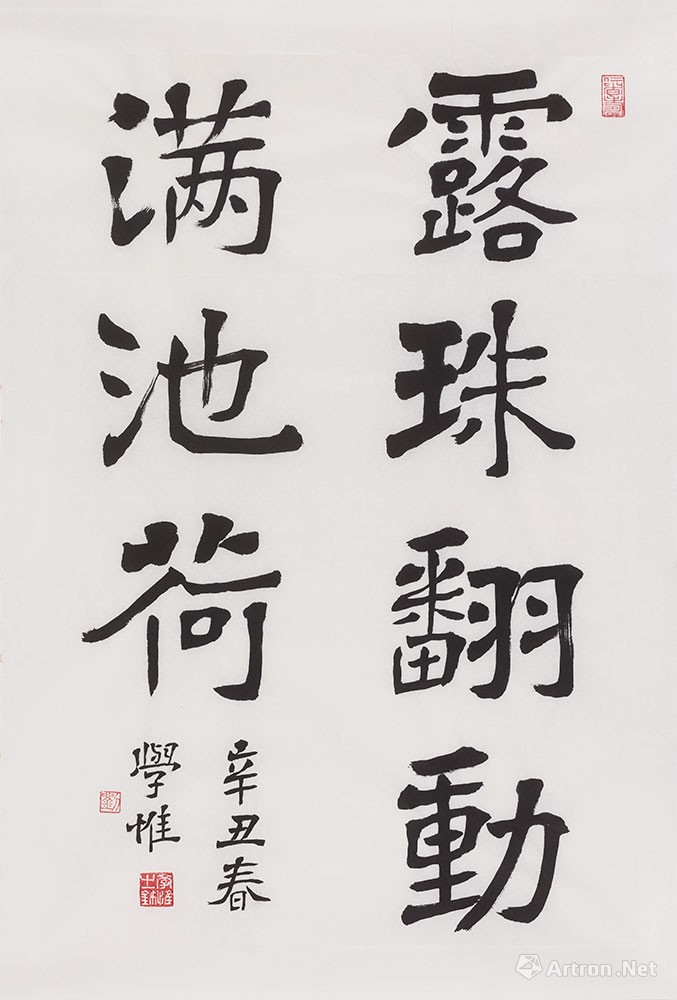 露珠翻動
满池荷
辛丑春
學惟
Artron.Net